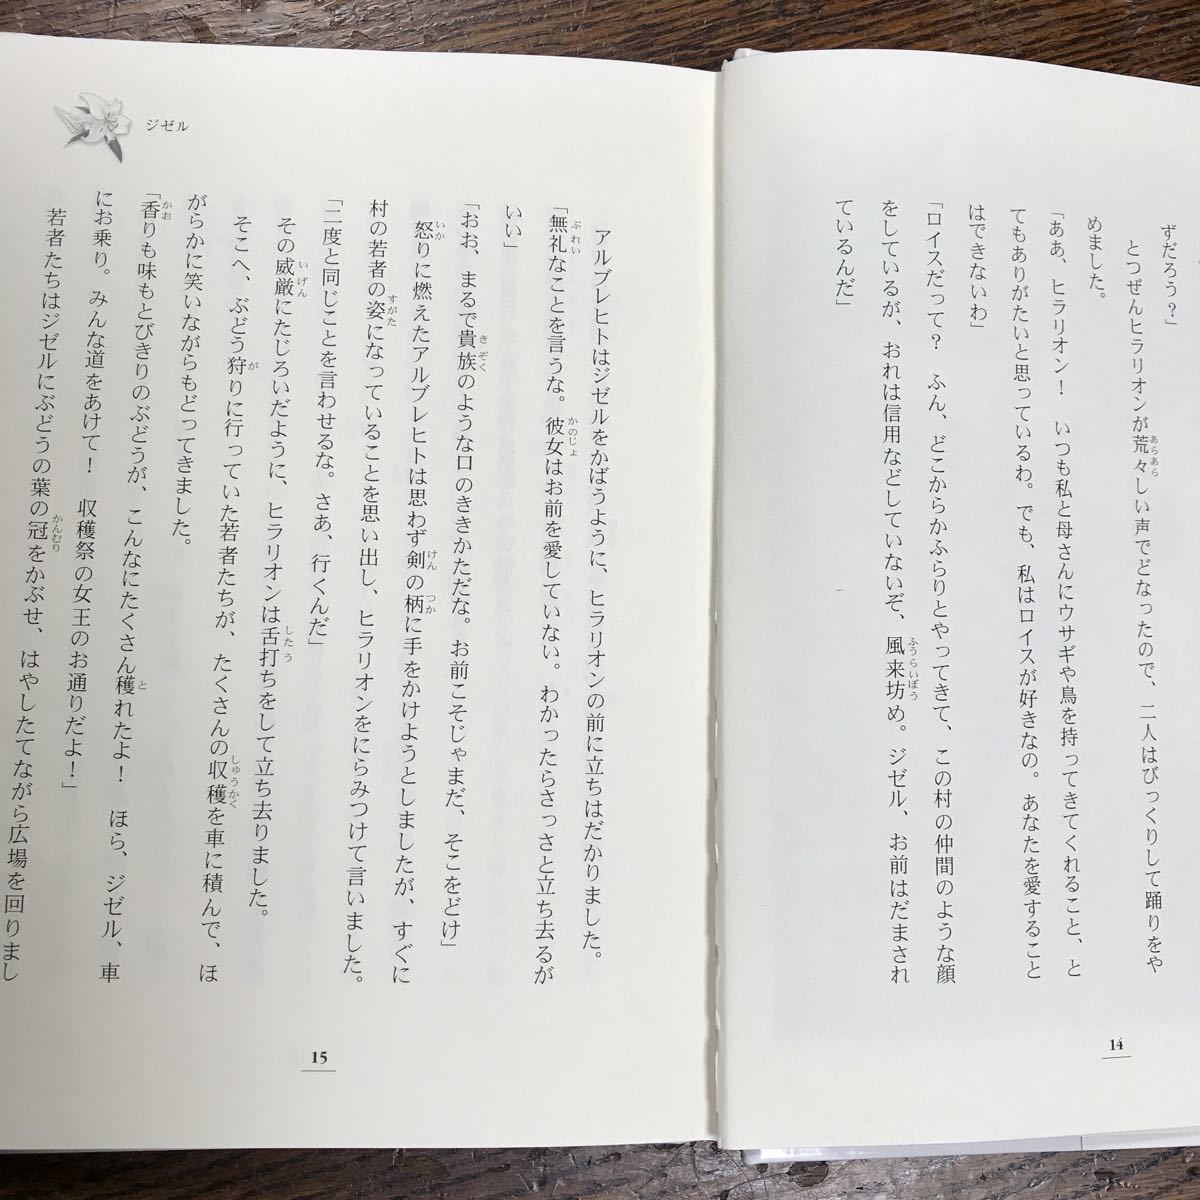 ずだろう？」
とつぜんヒラリオンが荒々しい声でどなったので、二人はびっくりして踊りをや
めました。
「ああ、ヒラリオン！　いつも私と母さんにウサギや鳥を持ってきてくれること、と
てもありがたいと思っているわ。でも、私はロイスが好きなの。あなたを愛すること
はできないわ」
「ロイスだって？　ふん、どこからかふらりとやってきて、この村の仲間のような顔
をしているが、おれは信用などしていないぞ、風来坊め。ジゼル、お前はだまされ
ているんだ」
14
ジゼル
アルブレヒトはジゼルをかばうように、ヒラリオンの前に立ちはだかりました。
「無礼なことを言うな。彼女はお前を愛していない。わかったらさっさと立ち去るが
いい」
「おお、まるで貴族のような口のききかただな。お前こそじゃまだ、そこをどけ」
怒りに燃えたアルブレヒトは思わず剣の柄に手をかけようとしましたが、すぐに
村の若者の姿になっていることを思い出し、ヒラリオンをにらみつけて言いました。
「二度と同じことを言わせるな。さあ、行くんだ」
その威厳にたじろいだように、ヒラリオンは舌打ちをして立ち去りました。
そこへ、ぶどう狩りに行っていた若者たちが、たくさんの収穫を車に積んで、ほ
がらかに笑いながらもどってきました。
「香りも味もとびきりのぶどうが、こんなにたくさん穫れたよ！　ほら、ジゼル、車
にお乗り。みんな道をあけて！　収穫祭の女王のお通りだよ！」
若者たちはジゼルにぶどうの葉の冠をかぶせ、はやしたてながら広場を回りまし
15